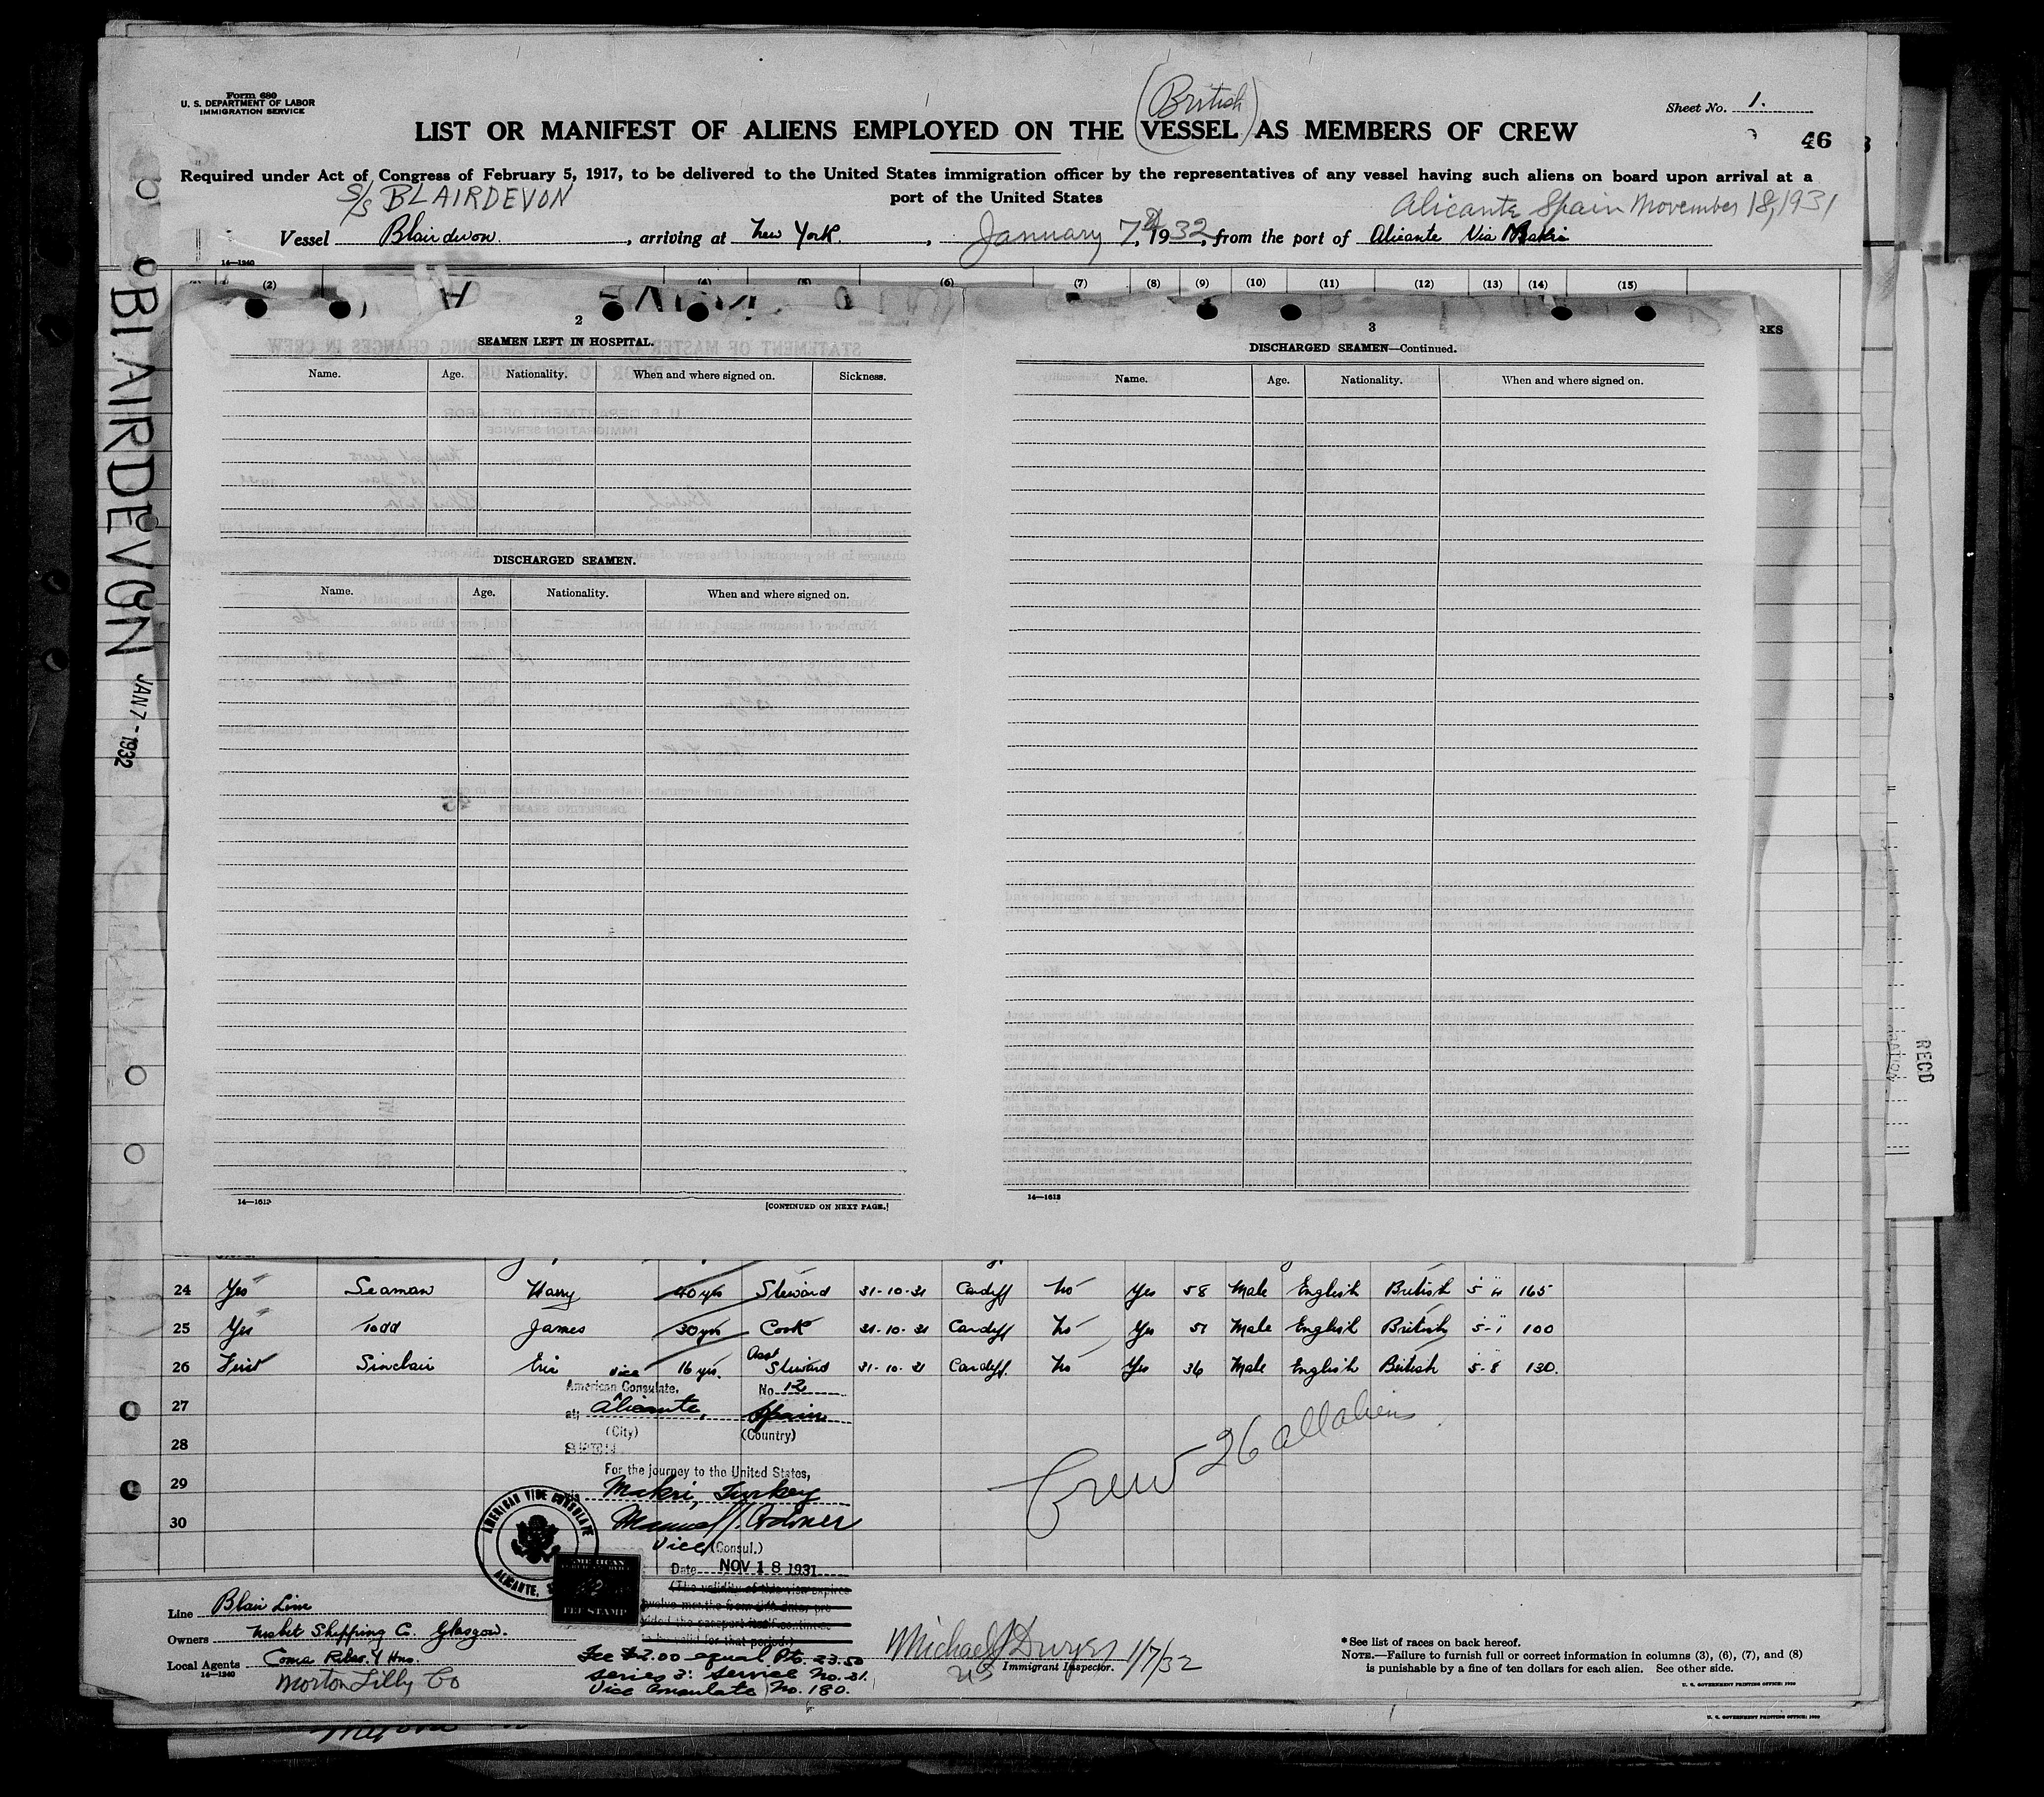 Form 680
U. S. DEPARTMENT OF LABOR
IMMIGRATION SERVICE
(British)
Sheet No. 1.
LIST OR MANIFEST OF ALIENS EMPLOYED ON THE VESSEL AS MEMBERS OF CREW
46
Required under Act of Congress of February 5, 1917, to be delivered to the United States immigration officer by the representatives of any vessel having such aliens on board upon arrival at a
port of the United States
S/S BLAIRDEVON
Alicante Spain November 18, 1931
Vessel Blairdevon, arriving at New York, January 7, 1932, from the port of Alicante Via Makri
14—1240
(2) (4) (5) (6) (7) (8) (9) (10) (11) (12) (13) (14) (15)
RKS
BLAIRDEVON JAN 7-1932
2
SEAMEN LEFT IN HOSPITAL.
Name. Age. Nationality. When and where signed on. Sickness.
DISCHARGED SEAMEN.
Name. Age. Nationality. When and where signed on.
14—1613
[CONTINUED ON NEXT PAGE.]
3
DISCHARGED SEAMEN—Continued.
Name. Age. Nationality. When and where signed on.
14—1613
RECD
24 Yes Seaman Harry 40 yrs Steward 31-10-31 Cardiff No Yes 58 Male English British 5 165
25 Yes Todd James 30 yrs Cook 31-10-31 Cardiff No Yes 51 Male English British 5-1 100
26 First Sinclair Eric 16 yrs. Asst Steward 31-10-31 Cardiff. No Yes 36 Male English British 5-8 130.
27
28
29
30
Vice
American Consulate, No. 12
at Alicante, Spain
(City) (Country)
For the journey to the United States,
Makri, Turkey
Vice (Consul.)
Date NOV 18 1931
(The validity of this visa expires
twelve months from this date, pro-
vided the passport itself continues
to be valid for that period.)
Fee $2.00 equal Pts. 23.50
Series 3: Service No. 31.
Vice Consulate No. 180.
AMERICAN VICE CONSULATE
ALICANTE,
AMERICAN
FEE STAMP
Crew 26 all aliens
Line Blair Line
Owners Nisbet Shipping Co. Glasgow.
Local Agents Coma Ribas. Y Hno.
14—1240
Morton Lilly Co
Michael J Dwyer 1/7/32
US Immigrant Inspector.
* See list of races on back hereof.
NOTE.—Failure to furnish full or correct information in columns (3), (6), (7), and (8)
is punishable by a fine of ten dollars for each alien. See other side.
U. S. GOVERNMENT PRINTING OFFICE: 1930
U. S. GOVERNMENT PRINTING OFFICE: 1930